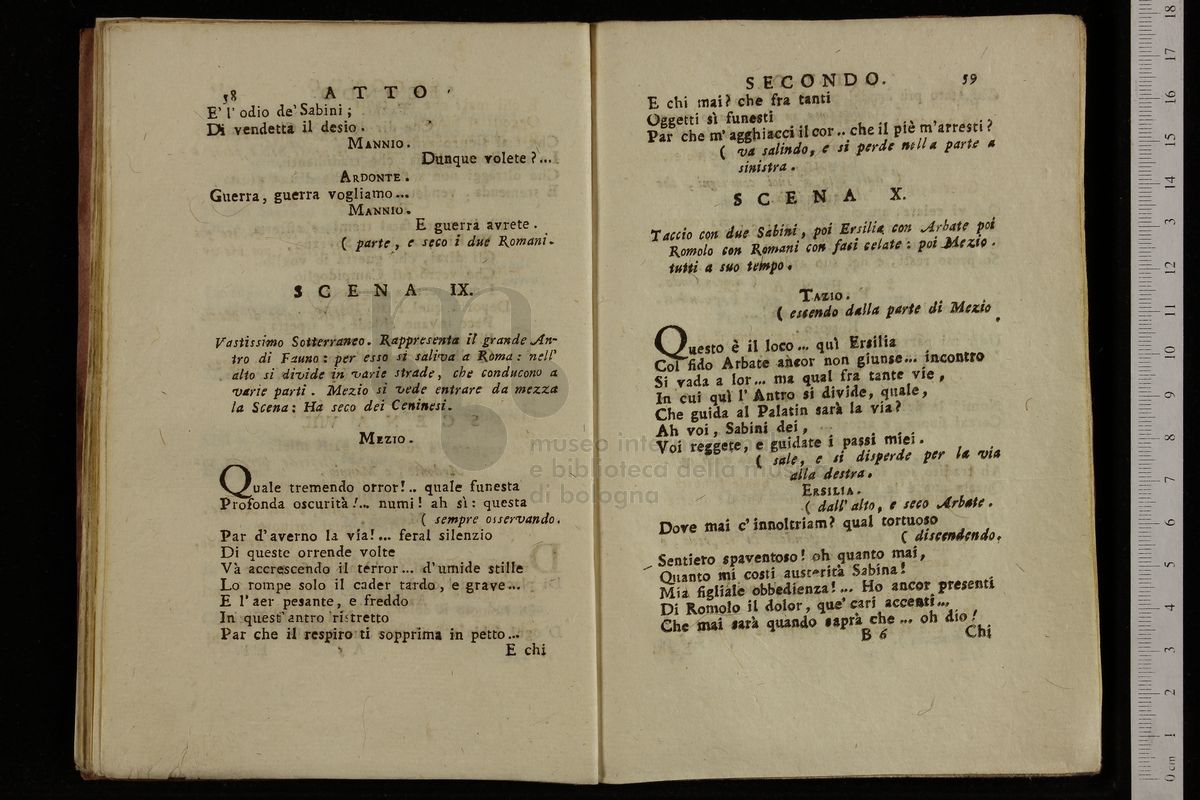 38 ATTO
E' l'odio de' Sabini;
Di vendetta il desio.
MANNIO.
Dunque volete?...
ARDONTE.
Guerra, guerra vogliamo...
MANNIO.
E guerra avrete.
( parte, e seco i due Romani.
SCENA IX.
Vastissimo Sotterraneo. Rappresenta il grande An-
tro di Fauno: per esso si saliva a Roma: nell'
alto si divide in varie strade, che conducono a
varie parti. Mezio si vede entrare da mezza
la Scena: Ha seco dei Ceninesi.
MEZIO.
Quale tremendo orror!.. quale funesta
Profonda oscurità!... numi! ah sì: questa
( sempre osservando.
Par d'averno la vía!... feral silenzio
Di queste orrende volte
Và accrescendo il terror... d'umide stille
Lo rompe solo il cader tardo, e grave...
E l'aer pesante, e freddo
In quest'antro ristretto
Par che il respiro ti sopprima in petto...
E chi
SECONDO. 59
E chi mai? che fra tanti
Oggetti sì funesti
Par che m'agghiacci il cor.. che il piè m'arresti?
( va salindo, e si perde nella parte a
sinistra.
SCENA X.
Taccio con due Sabini, poi Ersilia con Arbate poi
Romolo con Romani con faci celate: poi Mezio.
tutti a suo tempo.
TAZIO.
( escendo dalla parte di Mezio.
Questo è il loco... quì Ersilia
Col fido Arbate ancor non giunse... incontro
Si vada a lor... ma qual fra tante vie,
In cui quì l'Antro si divide, quale,
Che guida al Palatin sarà la via?
Ah voi, Sabini dei,
Voi reggete, e guidate i passi miei.
( sale, e si disperde per la via
alla destra.
ERSILIA.
( dall'alto, e seco Arbate.
Dove mai c'innoltriam? qual tortuoso
( discendendo.
Sentiero spaventoso! oh quanto mai,
Quanto mi costi austerità Sabina!
Mia figliale obbedienza!... Ho ancor presenti
Di Romolo il dolor, que' cari accenti...
Che mai sarà quando saprà che... oh dio!
B 6 Chi
museo inte
e biblioteca della musica
di bologna
0 cm 1 2 3 4 5 6 7 8 9 10 11 12 13 14 15 16 17 18